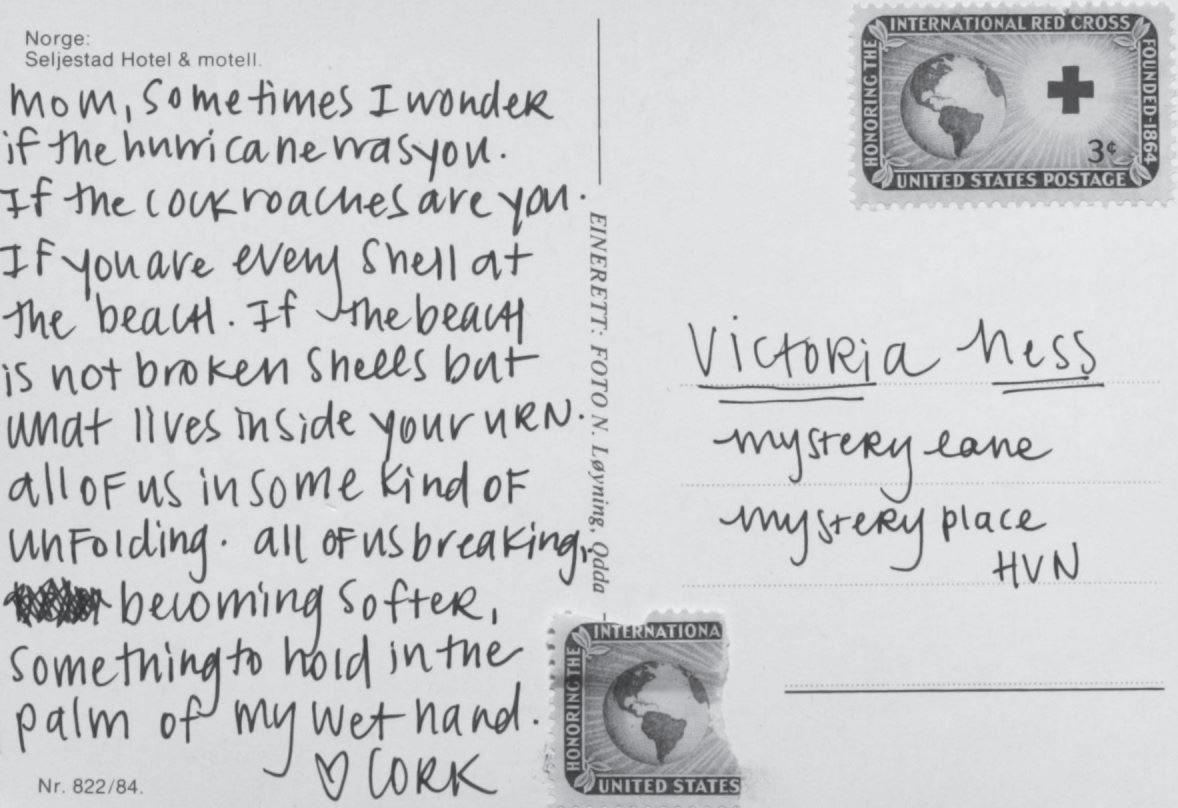 Norge:
Seljestad Hotel & motell.
mom, sometimes I wonder
if the hurricane was you.
If the cockroaches are you.
If you are every shell at
the beach. If the beach
is not broken shells but
what lives inside your urn.
all of us in some kind of
unfolding. all of us breaking,
becoming softer,
something to hold in the
palm of my wet hand.
♡ CORK
Nr. 822/84.
EINERETT: FOTO N. Løyning, Odda
HONORING THE
INTERNATIONAL RED CROSS
FOUNDED-1864
3¢
UNITED STATES POSTAGE
Victoria Ness
mystery lane
mystery place
HVN
HONORING THE
INTERNATIONA
UNITED STATES